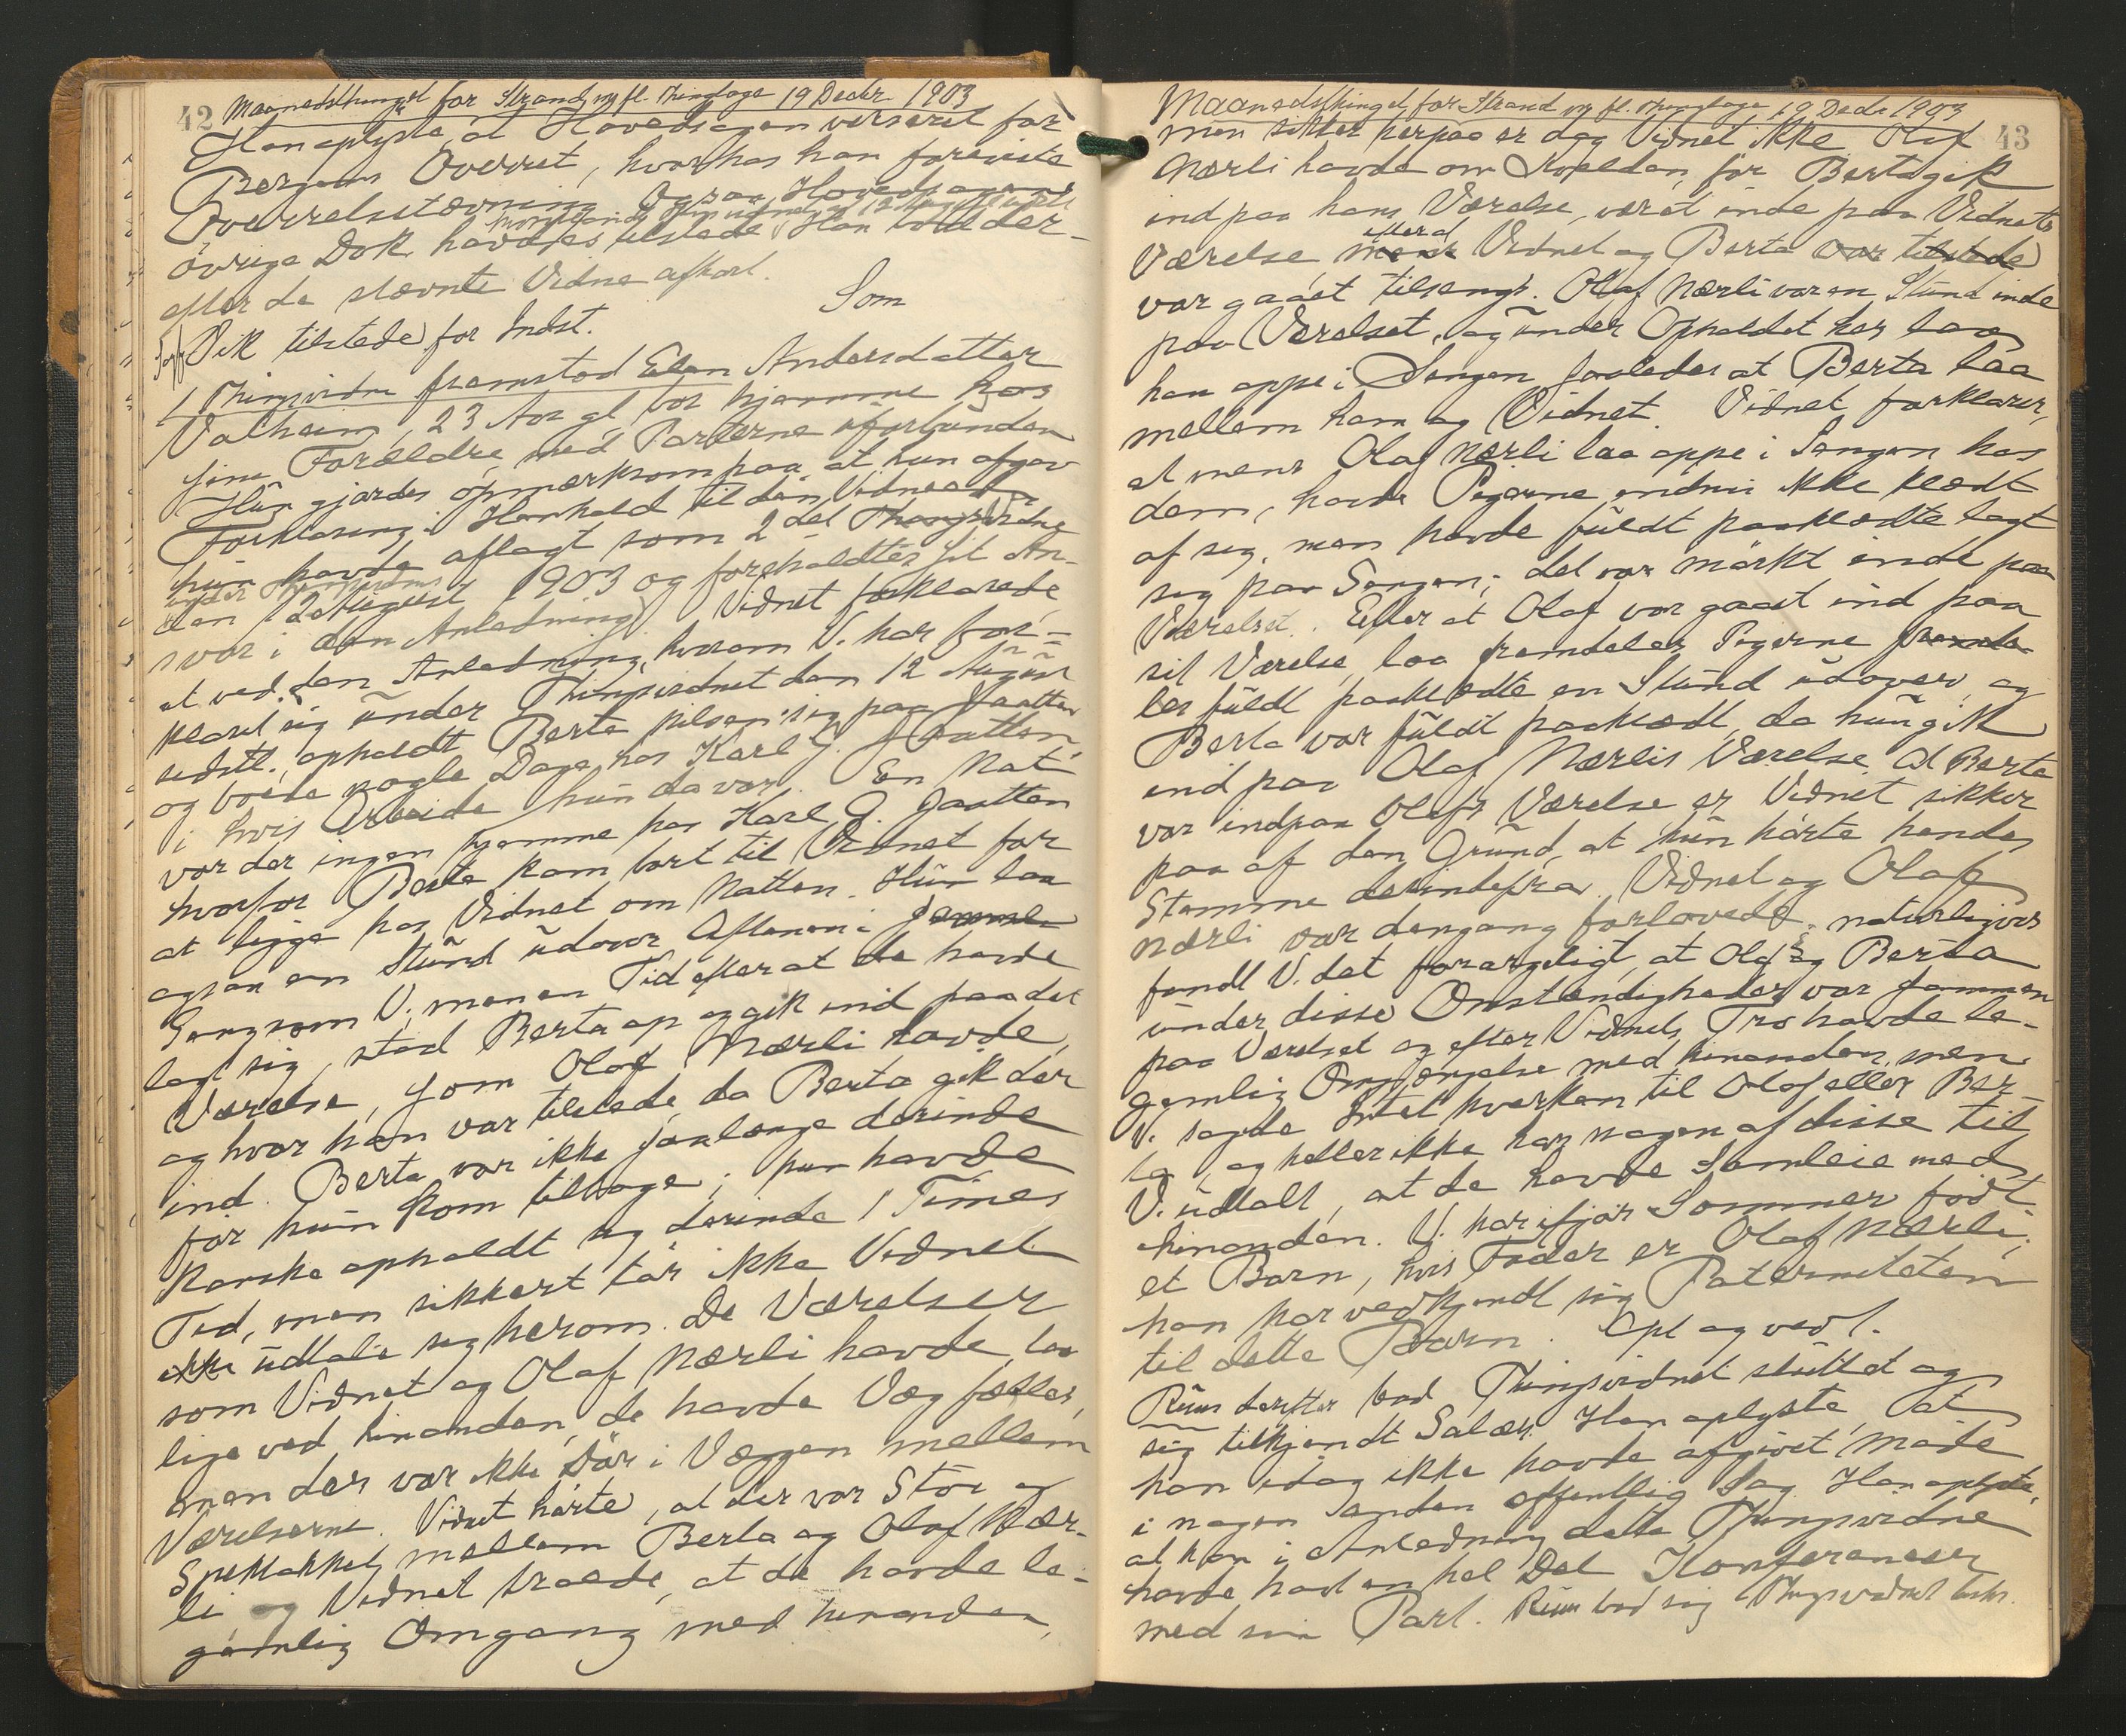 42 Maanedsthinget for Strand m fl. Thinglage 19 Decbr 1903
Han oplyste, at Hovedsagen verseret for
Bergens Overret, hvorhos han foreviste
Overretsstævning. Ogsaa Hovedsagens
øvrige Dok. havdes tilstede. Han bad der-
efter de stævnte Vidne afhørt.
Som
Vik tilstede for Indst.
1 Thingvidne fremstod Elen Andersdatter
Valheim, 23 Aar gl., bor hjemme hos
sine Forældre, med Parterne uforbunden
Hun gjordes opmærksom paa, at hun afgav
Forklaring i Henhold til den Vidneed
hun havde aflagt som 2det Thingsvidne
under Thingsvidnet
den 12 August 1903 og foreholdtes sit An-
svar i den Anledning. Vidnet forklarede,
at ved den Anledning, hvorom V. har for-
klaret sig under Thingsvidnet den 12 August
sidstl., opholdt Berta Nilsen sig paa Jaatten
og boede nogle Dage hos Karl G. Jaatten,
i hvis Arbeide hun da var. En Nat
var der ingen hjemme hos Karl G. Jaatten
hvorfor Berta kom bort til Vidnet for
at ligge hos Vidnet om Natten. Hun laa
ogsaa en Stund udover Aftenen i samme
Seng som V., men en Tid efter at de havde
lagt sig, stod Berta op og gik ind paa det
Værelse, som Olaf Nærli havde,
og hvor han var tilstede, da Berta gik der
ind. Berta var ikke saalænge derinde
før hun kom tilbage; hun havde
kanske opholdt sig derinde 1 Times
Tid, men sikkert tør ikke Vidnet
ikke udtale sig herom. De Værelser
som Vidnet og Olaf Nærli havde, laa
lige ved hinanden, de havde Væg fælles,
men der var ikke Dør i Væggen mellem
Værelserne. Vidnet hørte, at der var Støi og
Spektakkel mellem Berta og Olaf Nær-
li og Vidnet troede, at de havde le-
gemlig Omgang med hinanden,
Maanedsthinget for Strand m fl. Thinglage 19 Decbr 1903 43
men sikker herpaa er dog Vidnet ikke. Olaf
Nærli havde om Kvelden, før Berta gik
ind paa hans Værelse, været inde paa Vidnets
efterat
Værelse mens Vidnet og Berta var tilstede
var gaaet tilsengs. Olaf Nærli var en Stund inde
paa Værelset, og under Opholdet her laa
han oppe i Sengen saaledes at Berta laa
mellem ham og Vidnet. Vidnet forklarer,
at mens Olaf Nærli laa oppe i Sengen hos
dem, havde Pigerne endnu ikke klædt
af sig, men havde fuldt paaklædte lagt
sig paa Sengen; det var mørkt inde paa
Værelset. Efter at Olaf var gaaet ind paa
sit Værelse, laa fremdeles Pigerne fremde-
les fuldt paaklædte en Stund udover, og
Berta var fuldt paaklædt, da hun gik
ind paa Olaf Nærlis Værelse. At Berta
var indpaa Olafs Værelse, er Vidnet sikker
paa af den Grund, at hun hørte hendes
Stemme derindefra. Vidnet og Olaf
Nærli var dengang forlovede; naturligvis
fandt V. det forargeligt, at Olaf og Berta
under disse Omstændigheder var sammen
paa Værelset og efter Vidnets Tro havde le-
gemlig Omgjængelse med hinanden, men
V. sagde Intet hverken til Olaf eller Ber-
ta, og heller ikke har nogen af disse til
V. udtalt, at de havde Samleie med
hinanden. V. har ifjor Sommer født
et Barn, hvis Fader er Olaf Nærli;
han har vedkjendt sig Paterniteten
til dette Barn. Opl og vedt.
Riim derefter bad Thingsvidnet sluttet og
sig tilkjendt Salær. Han oplyste, at
han idag ikke havde afgivet Møde
i nogen anden offentlig Sag. Han oplyste,
at han i Anledning dette Thingsvidne
havde havt en hel Del Konferencer
med sin Part. Riim bad sig Thingsvidnet besk.